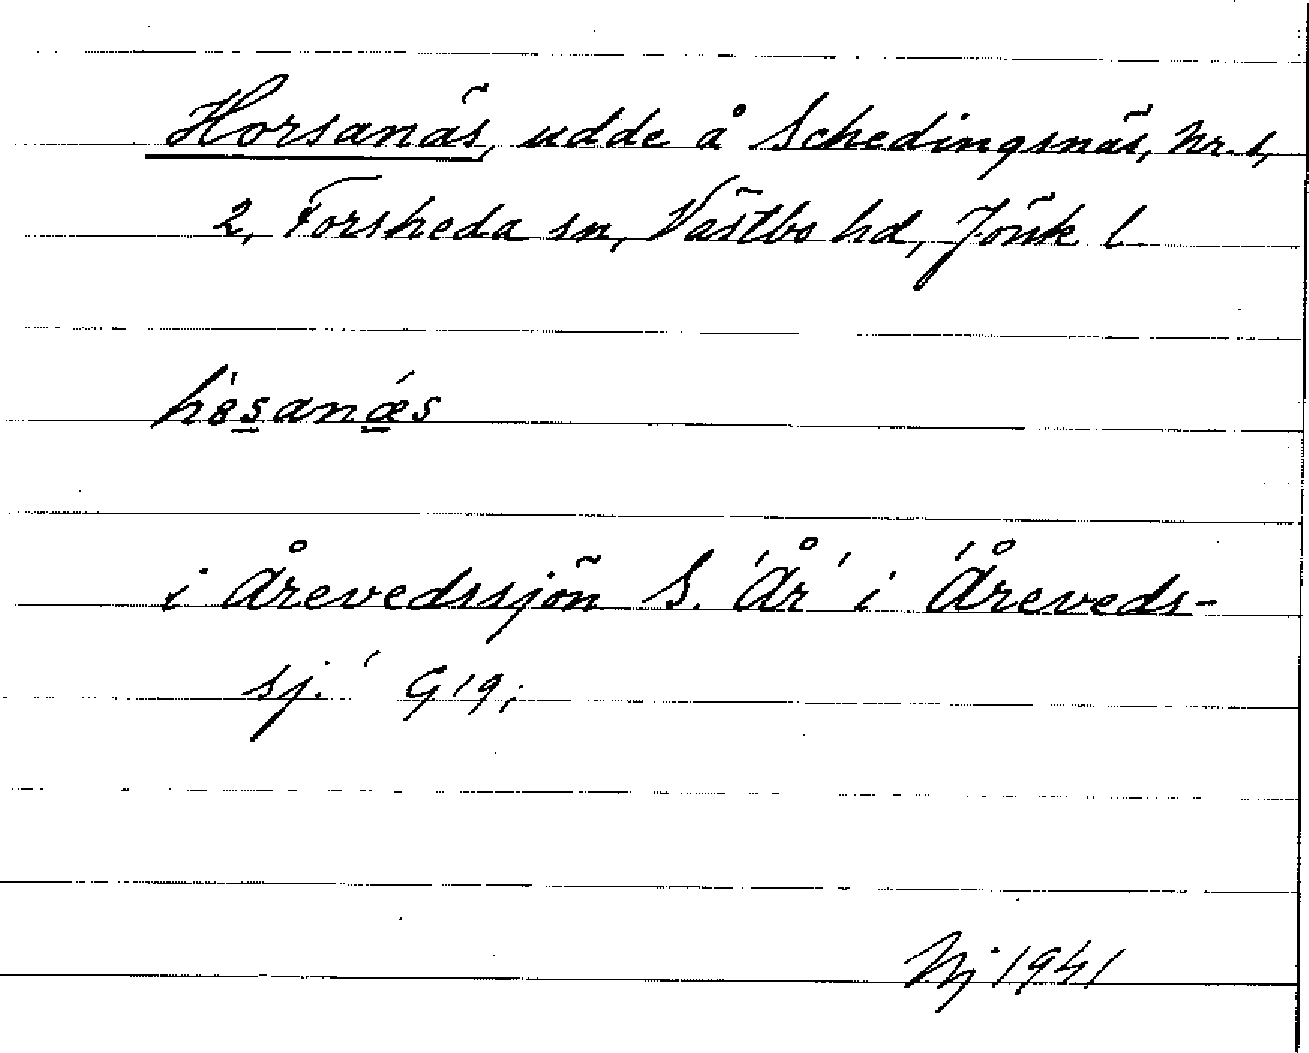 Horsanäs, udde å Schedingsnäs, Nr. 1,
2, Forsheda sn, Västbo hd, Jönk l
hàsanǽs
i Årevedssjön S. 'År' i 'Åreveds-
sj.' G19;
Nj 1941